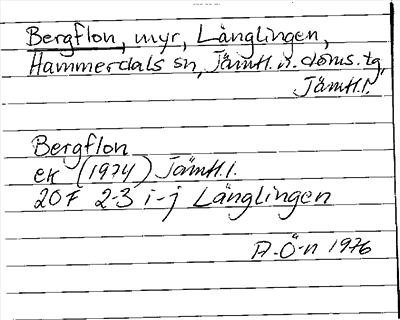 Bergflon, myr, Långlingen,
Hammerdals sn, Jämtl. n. doms. tg,
Jämtl. l.
Bergflon
ek (1974) Jämtl. l.
20F 2-3 i-j Långlingen
A.Ö-n 1976